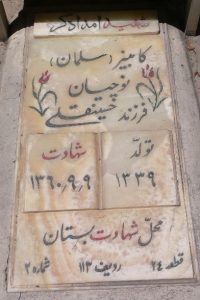 شهید امدادگر
کامبیز (سلمان)
نوچیان
فرزند حسینقلی
تولّد
شهادت
۱۳۳۹
۱۳۶۰٫۹٫۹
محلّ شهادت بستان
قطعه ۲۴ ردیف ۱۱۳ شماره ۲